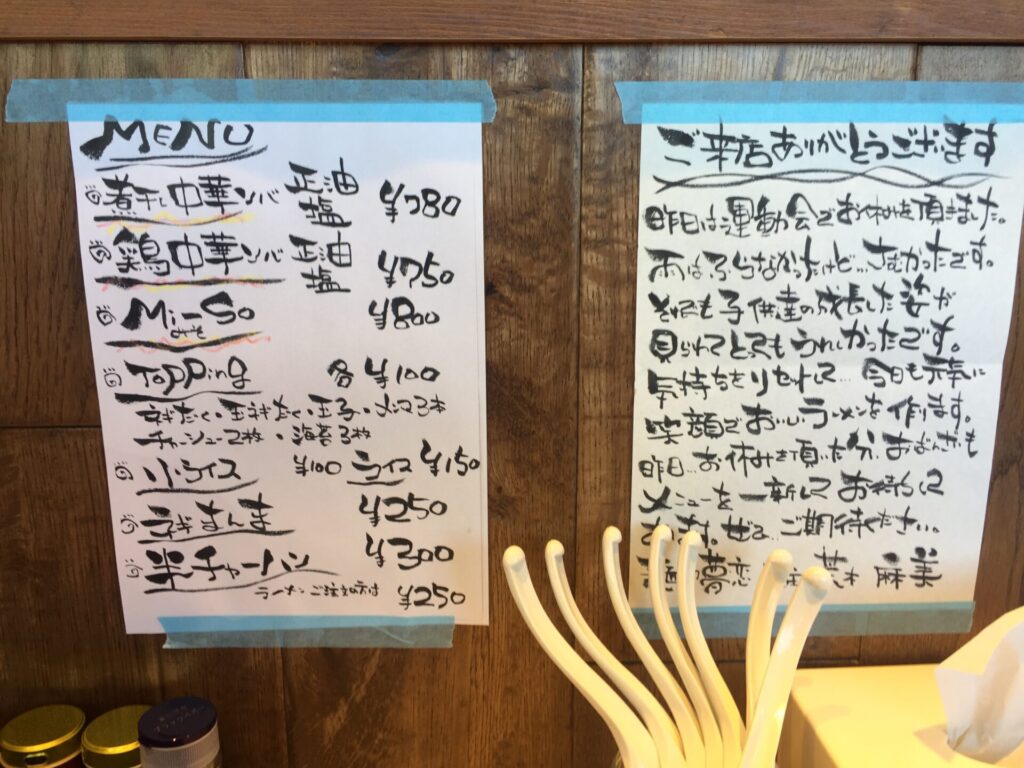 MENU
煮干し中華ソバ 正油 塩 ¥780
鶏中華ソバ 正油 塩 ¥750
Mi-So
みそ ¥800
Topping 各¥100
ネギだく・玉ネギだく・玉子・メンマ3本
チャーシュー2枚・海苔3枚
小ライス ¥100 ライス ¥150
ネギまんま ¥250
半チャーハン ¥300
ラーメンご注文の方は ¥250
ご来店ありがとうございます
昨日は運動会でお休みを頂きました。
雨はふらなかったけど…さむかったです。
それでも子供達の成長した姿が
見られてとってもうれしかったです。
気持ちをリセットして…今日も元氣に
笑顔でおいしいラーメンを作ります。
昨日…お休みを頂いた分、おばんざいも
メニューを一新してお待ちして
おります。ぜひ、ご期待ださい。
夢恋 麻美